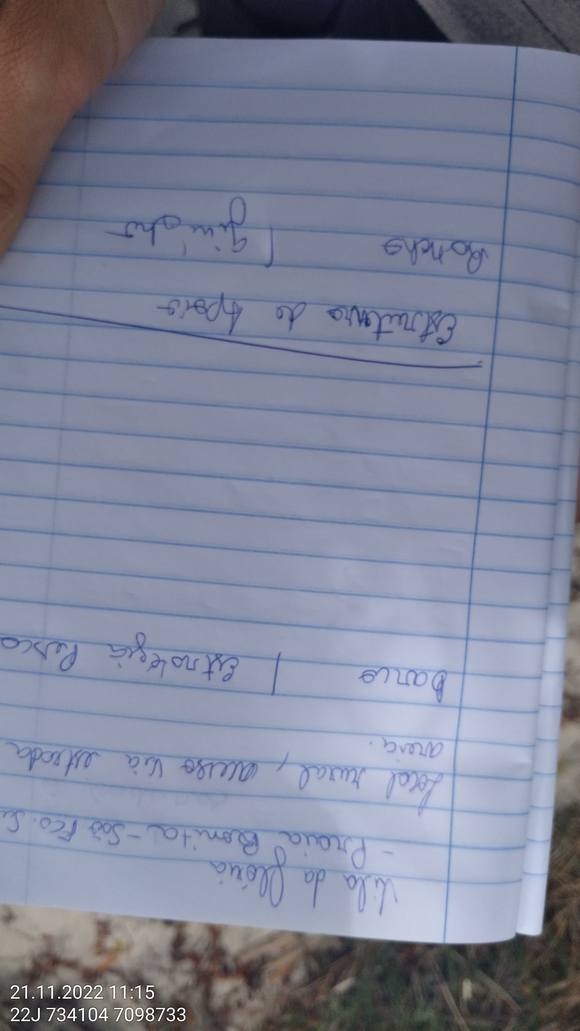 Vila da Glória
- Praia Bonita - São Fco. S
Local rural, acesso via estrada
areia.
Barco | Estratégia Pesca
Estrutura de Apoio
Rancho |
21.11.2022 11:15
22J 734104 7098733